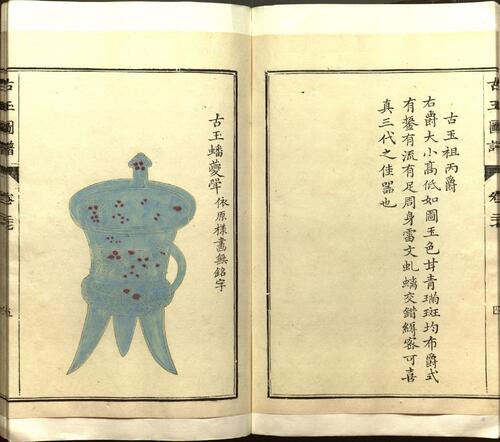 古玉祖丙爵
右爵大小高低如圖玉色甘青璊斑均布爵式
有鋬有流有足周身雷文虬蟠交錯縟密可喜
真三代之佳器也
古玉圖譜
四
古玉蟠夔斝
依原樣畫無銘字
古玉圖譜
五